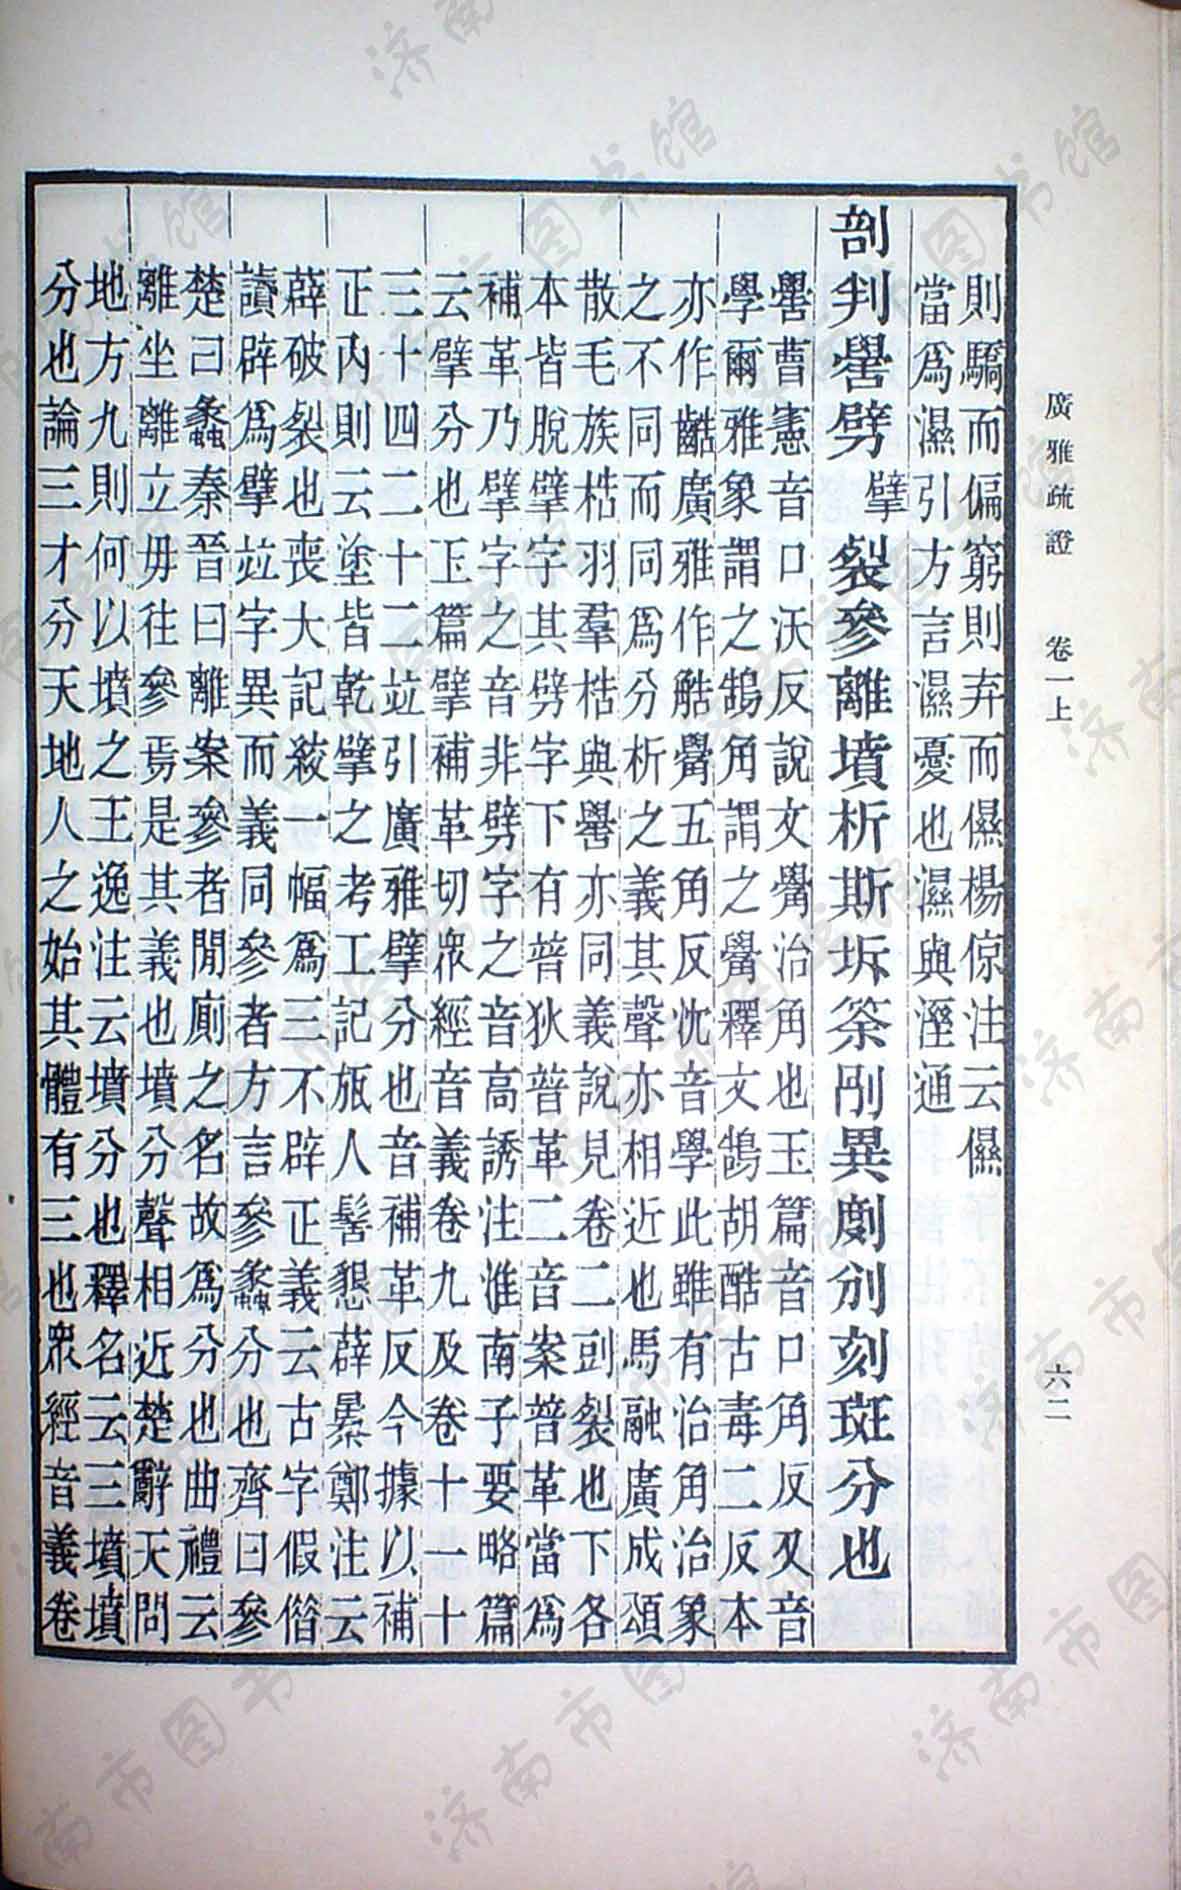 廣雅疏證　卷一上　六二
則驕而偏窮則弃而儑楊倞注云儑
當為濕引方言濕憂也濕與溼通
剖判嚳劈擘裂參離墳析斯坼筡刖異劇别刻斑分也
嚳曹憲音口沃反說文觷治角也玉篇音口角反又音
學爾雅象謂之鵠角謂之觷釋文鵠胡酷古毒二反本
亦作齰廣雅作觷五角反沈音學此雖有治角治象
之不同而同為分析之義其聲亦相近也馬融廣成頌
散毛族梏羽羣梏與嚳亦同義說見卷二㓨裂也下各
本皆脫擘字其劈字下有普狄普革二音案普革當為
補革乃擘字之音非劈字之音高誘注淮南子要略篇
云擘分也玉篇擘補革切眾經音義卷九及卷十一十
三十四二十二竝引廣雅擘分也音補革反今據以補
正內則云塗皆乾擘之考工記瓬人髺墾薜暴鄭注云
薜破裂也喪大記絞一幅為三不辟正義云古字假借
讀辟為擘竝字異而義同參者方言參蠡分也齊曰參
楚曰蠡秦晉曰離案參者閒廁之名故為分也曲禮云
離坐離立毋往參焉是其義也墳分聲相近楚辭天問
地方九則何以墳之王逸注云墳分也釋名云三墳墳
分也論三才分天地人之始其體有三也眾經音義卷
济南市图书馆